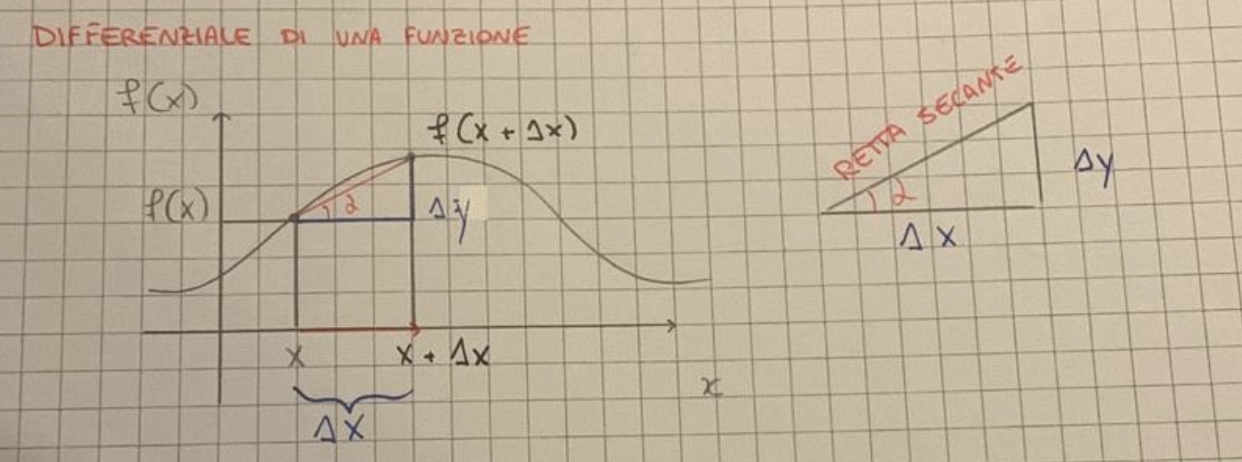 DIFFERENZIALE DI UNA FUNZIONE
f(x)
f(x + Δx)
f(x)
α
Δy
x
x + Δx
x
Δx
RETTA SECANTE
α
Δy
Δx